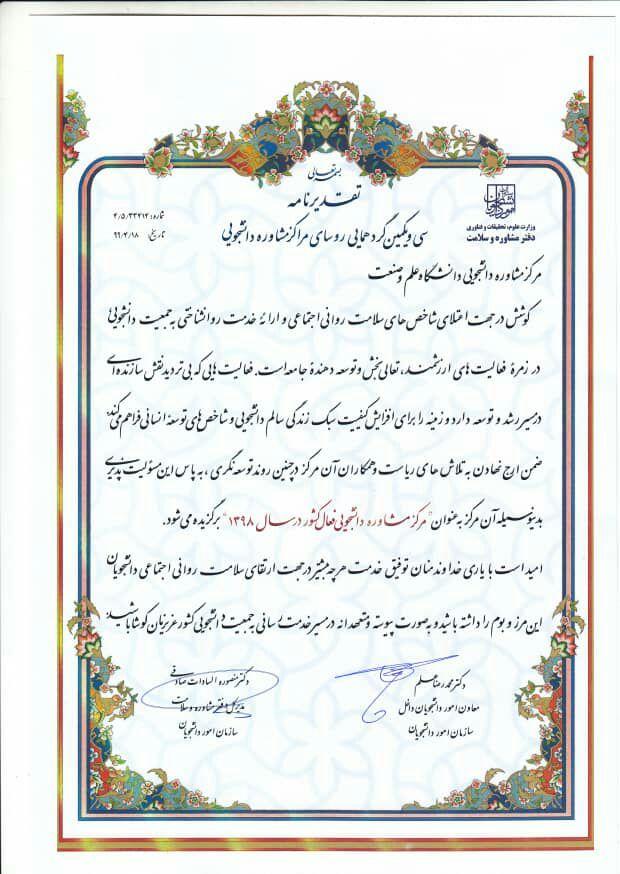 بسمه تعالی
تقدیرنامه
شماره: ۴/۵/۳۳۴۱۲
تاریخ: ۹۹/۴/۱۸
سازمان امور دانشجویان
وزارت علوم، تحقیقات و فناوری
دفتر مشاوره و سلامت
سی و یکمین گردهمایی روسای مراکز مشاوره دانشجویی
مرکز مشاوره دانشجویی دانشگاه علم و صنعت
کوشش در جهت اعتلای شاخص های سلامت روانی اجتماعی و ارائه خدمت روانشناختی به جمعیت دانشجویی
در زمره فعالیت های ارزشمند، تعالی بخش و توسعه دهنده جامعه است. فعالیت هایی که بی تردید نقش سازنده ای
در مسیر رشد و توسعه دارد و زمینه را برای افزایش کیفیت سبک زندگی سالم دانشجویی و شاخص های توسعه انسانی فراهم می کند.
ضمن ارج نهادن به تلاش های ریاست و همکاران آن مرکز در چنین روند توسعه نگری، به پاس این مسؤلیت پذیری
بدینوسیله آن مرکز به عنوان "مرکز مشاوره دانشجویی فعال کشور در سال ۱۳۹۸" برگزیده می شود.
امید است با یاری خداوند منان توفیق خدمت هرچه بیشتر در جهت ارتقای سلامت روانی اجتماعی دانشجویان
این مرز و بوم را داشته باشید و به صورت پیوسته و متعهدانه در مسیر خدمت رسانی به جمعیت دانشجویی کشور عزیزمان کوشا باشید.
دکتر محمدرضا علم
معاون امور دانشجویان داخل
سازمان امور دانشجویان
دکتر منصوره السادات صادقی
مدیرکل دفتر مشاوره و سلامت
سازمان امور دانشجویان